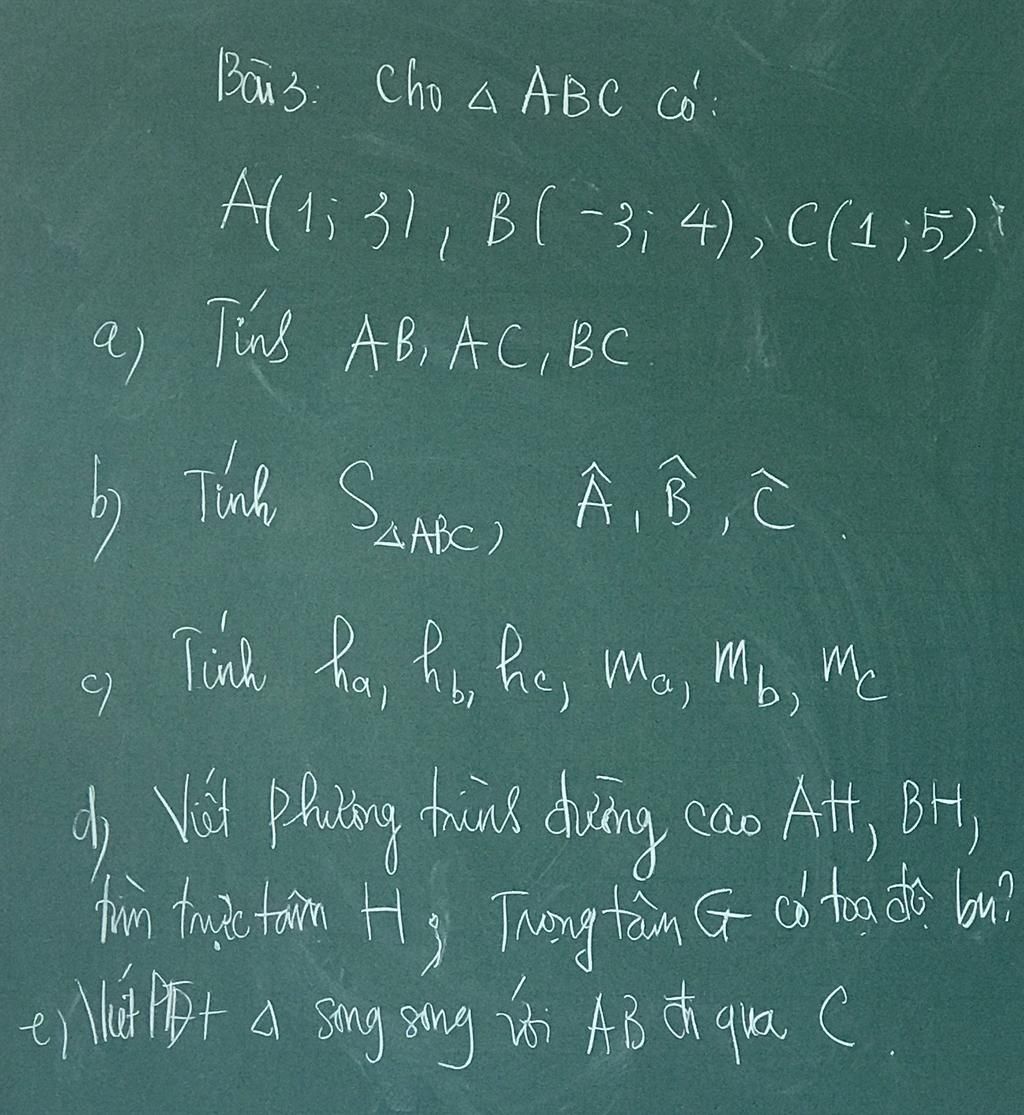 Bài 3: Cho △ ABC có:
A(1; 3), B(-3; 4), C(1; 5).
a) Tính AB, AC, BC.
b) Tính S△ABC, Â, B̂, Ĉ.
c) Tính ha, hb, hc, ma, mb, mc
d) Viết phương trình đường cao AH, BH,
tìm trực tâm H; Trọng tâm G có toạ độ bn?
e) Viết PTĐT △ song song với AB đi qua C.